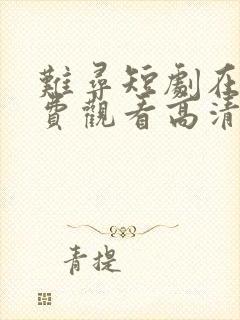 難尋短劇在
費觀看高清
青提